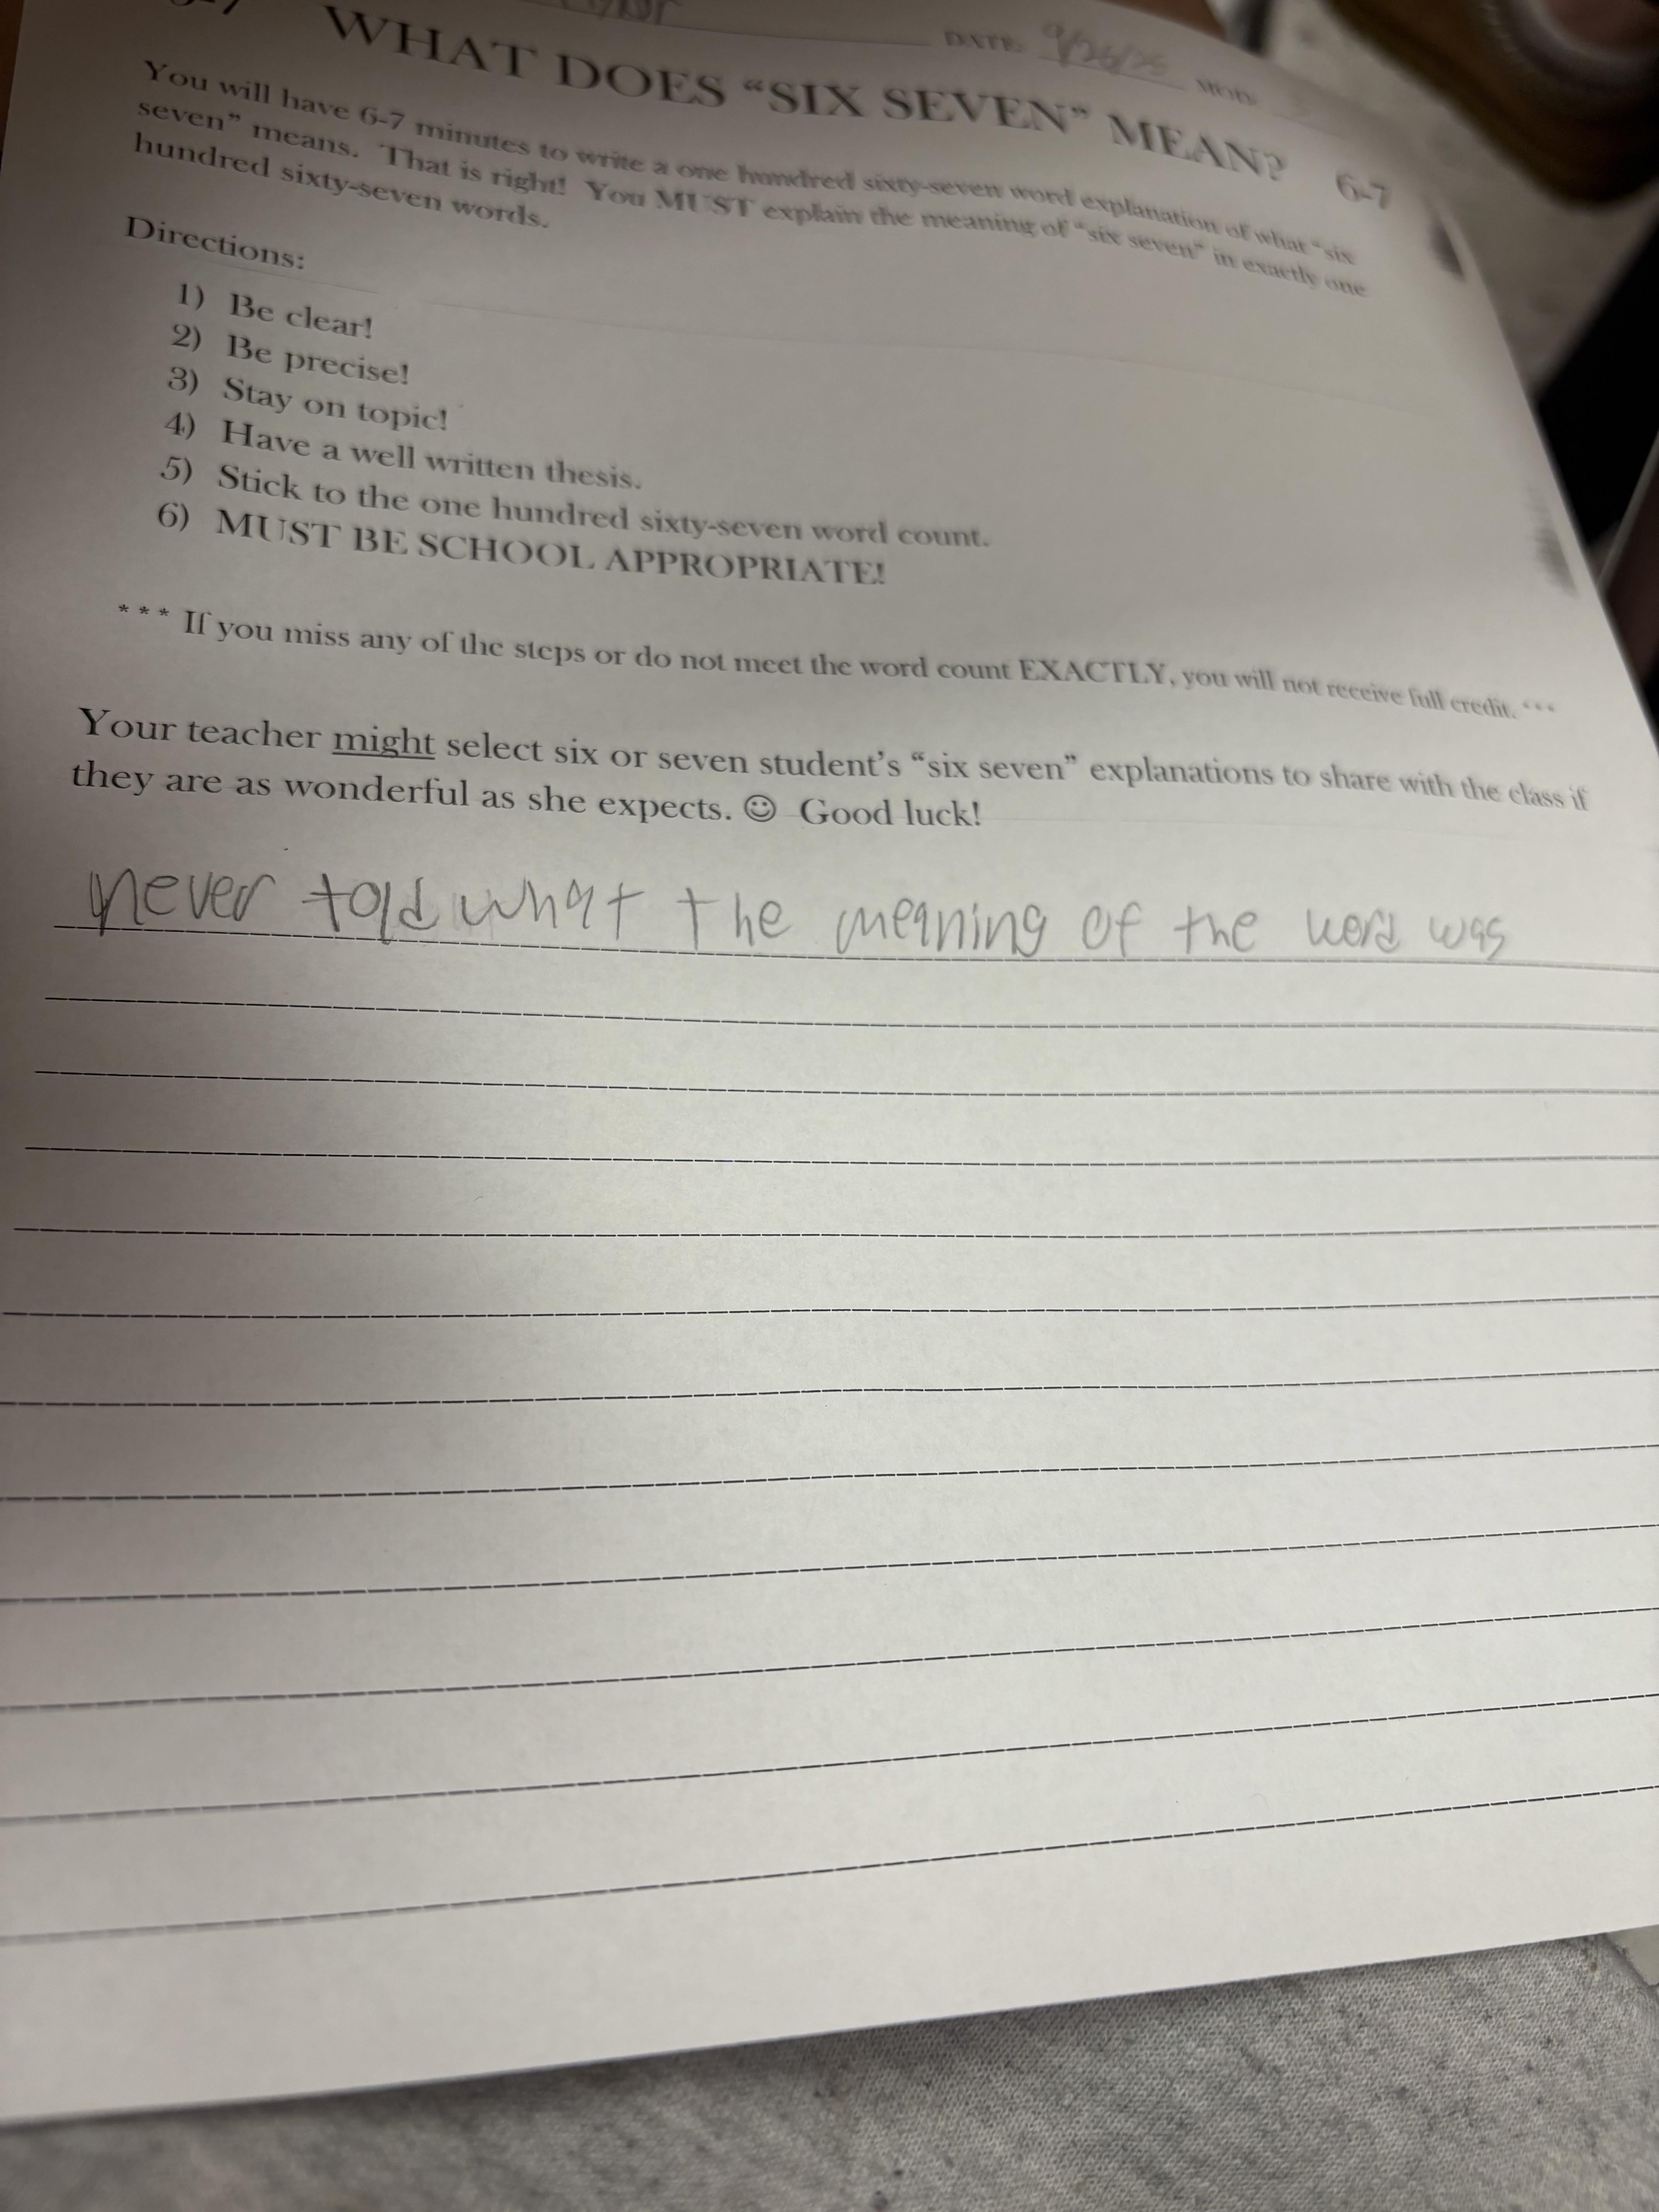 DATE: 9/26/25 MOD:
WHAT DOES “SIX SEVEN” MEAN? 6-7
You will have 6-7 minutes to write a one hundred sixty-seven word explanation of what “six
seven” means. That is right! You MUST explain the meaning of “six seven” in exactly one
hundred sixty-seven words.
Directions:
1) Be clear!
2) Be precise!
3) Stay on topic!
4) Have a well written thesis.
5) Stick to the one hundred sixty-seven word count.
6) MUST BE SCHOOL APPROPRIATE!
*** If you miss any of the steps or do not meet the word count EXACTLY, you will not receive full credit. ***
Your teacher might select six or seven student’s “six seven” explanations to share with the class if
they are as wonderful as she expects. ☺ Good luck!
never told what the meaning of the word was